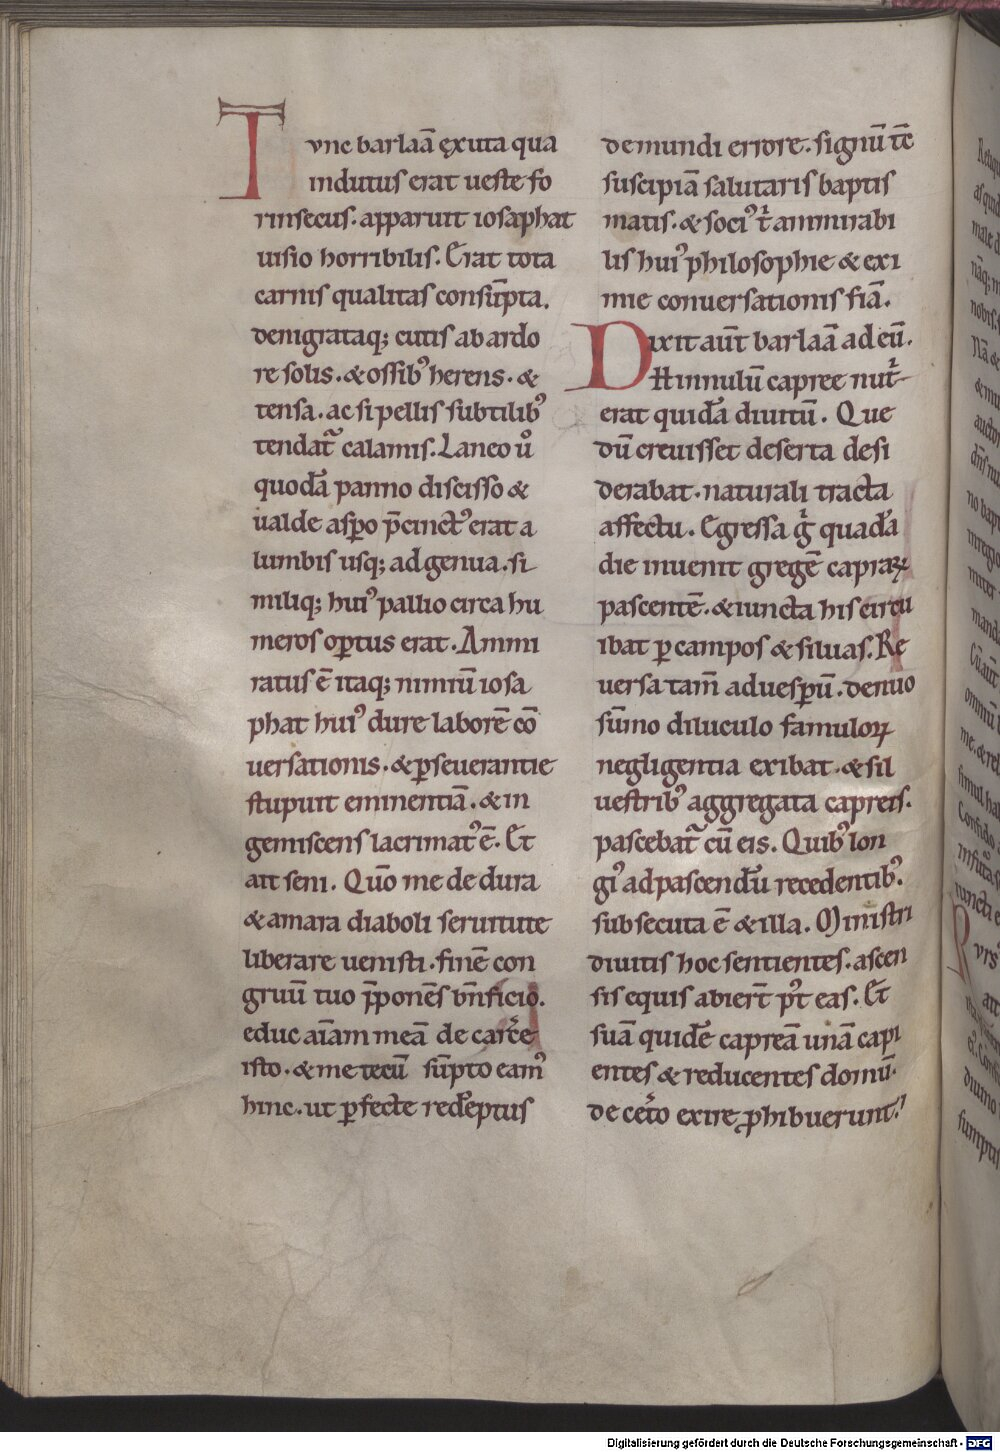 Tvnc barlaā exuta qua
indutus erat ueste fo
rinsecus. apparuit iosaphat
uisio horribilis. Erat tota
carnis qualitas consūpta.
denigrataq; cutis ab ardo
re solis. & ossib᷒ herens. &
tensa. ac si pellis subtilib᷒
tendat᷑ calamis. Laneo u͛o
quodā panno discisso &
ualde asꝑo p̄cinct᷒ erat a
lumbis usq; ad genua. si
miliq; hui᷒ pallio circa hu
meros oꝑtus erat. Ammi
ratus ē itaq; nimiū iosa
phat hui᷒ dure laborē cō
uersationis. & ꝑseuerantie
stupuit eminentiā. & in
gemiscens lacrimat᷒ ē. Et
ait seni. Qūo me de dura
& amara diaboli seruitute
liberare uenisti. finē con
gruū tuo p̄ponēs bn̄ficio.
educ aīam meā de carc͛e
isto. & me tecū sūpto eam᷒
hinc. ut ꝑfecte redēptus
de mundi errore. signū tē
suscipiā salutaris baptis
matis. & soci᷒ t͛ ammirabi
lis hui᷒ philosophie & exi
mie conuersationis fiā.
Dixit aūt barlaā ad eū.
Hinnulū capree nut͛
erat quidā diuitū. Que
dū creuisset deserta desi
derabat. naturali tracta
affectu. Egressa g͛ quadā
die inuenit gregē capraꝝ
pascentē. & iuncta his circu
ibat ꝑ campos & siluas. Re
uersa tam̄ ad uesꝑū. denuo
sūmo diluculo famuloꝝ
negligentia exibat. & sil
uestrib᷒ aggregata capreis.
pascebat᷑ cū eis. Quib᷒ lon
gi᷒ ad pascendū recedentib᷒.
subsecuta ē & illa. Ministri
diuitis hoc sentientes. ascen
sis equis abierт̄ p᷒t eas. Et
suā quidē capreā unā capi
entes & reducentes domū.
de cet͛o exire ꝓhibuerunt.
Digitalisierung gefördert durch die Deutsche Forschungsgemeinschaft - DFG